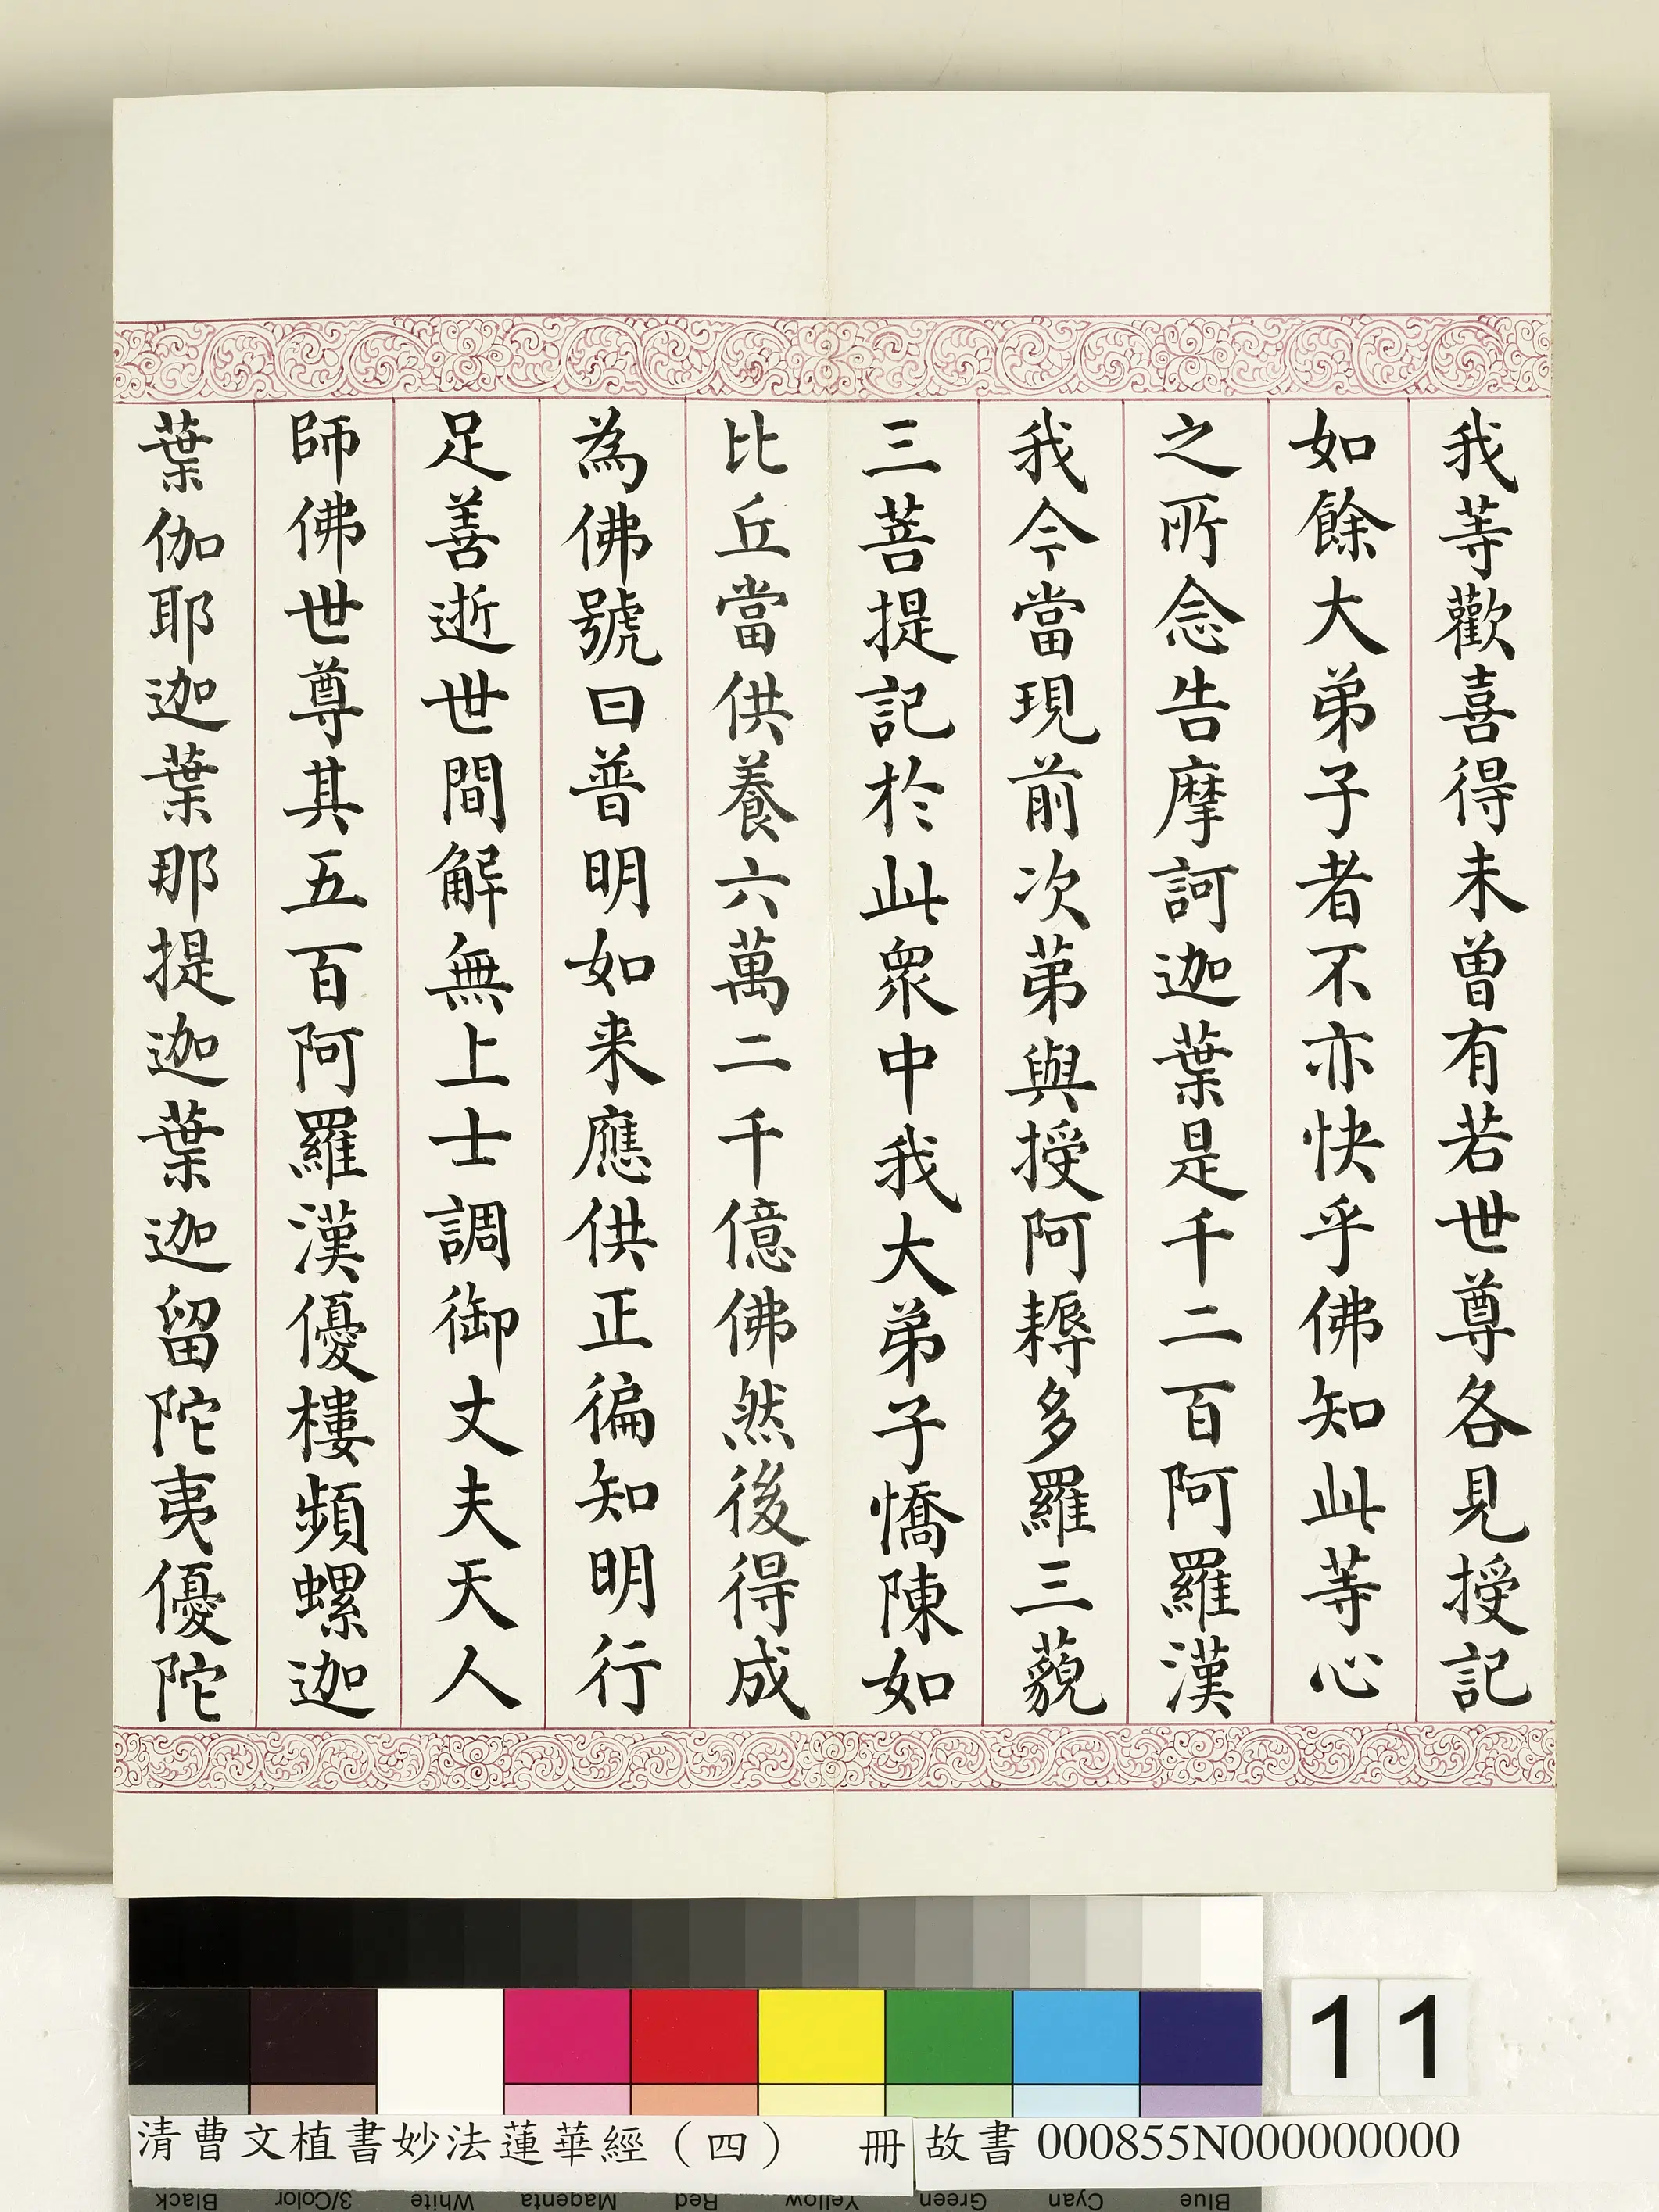 我等歡喜得未曾有若世尊各見授記
如餘大弟子者不亦快乎佛知此等心
之所念告摩訶迦葉是千二百阿羅漢
我今當現前次第與授阿耨多羅三藐
三菩提記於此眾中我大弟子憍陳如
比丘當供養六萬二千億佛然後得成
為佛號曰普明如来應供正徧知明行
足善逝世間解無上士調御丈夫天人
師佛世尊其五百阿羅漢優樓頻螺迦
葉伽耶迦葉那提迦葉迦留陀夷優陀
11
清曹文植書妙法蓮華經（四） 冊
故書 000855N000000000
Black 3/Color White Magenta Red Yellow Green Cyan Blue